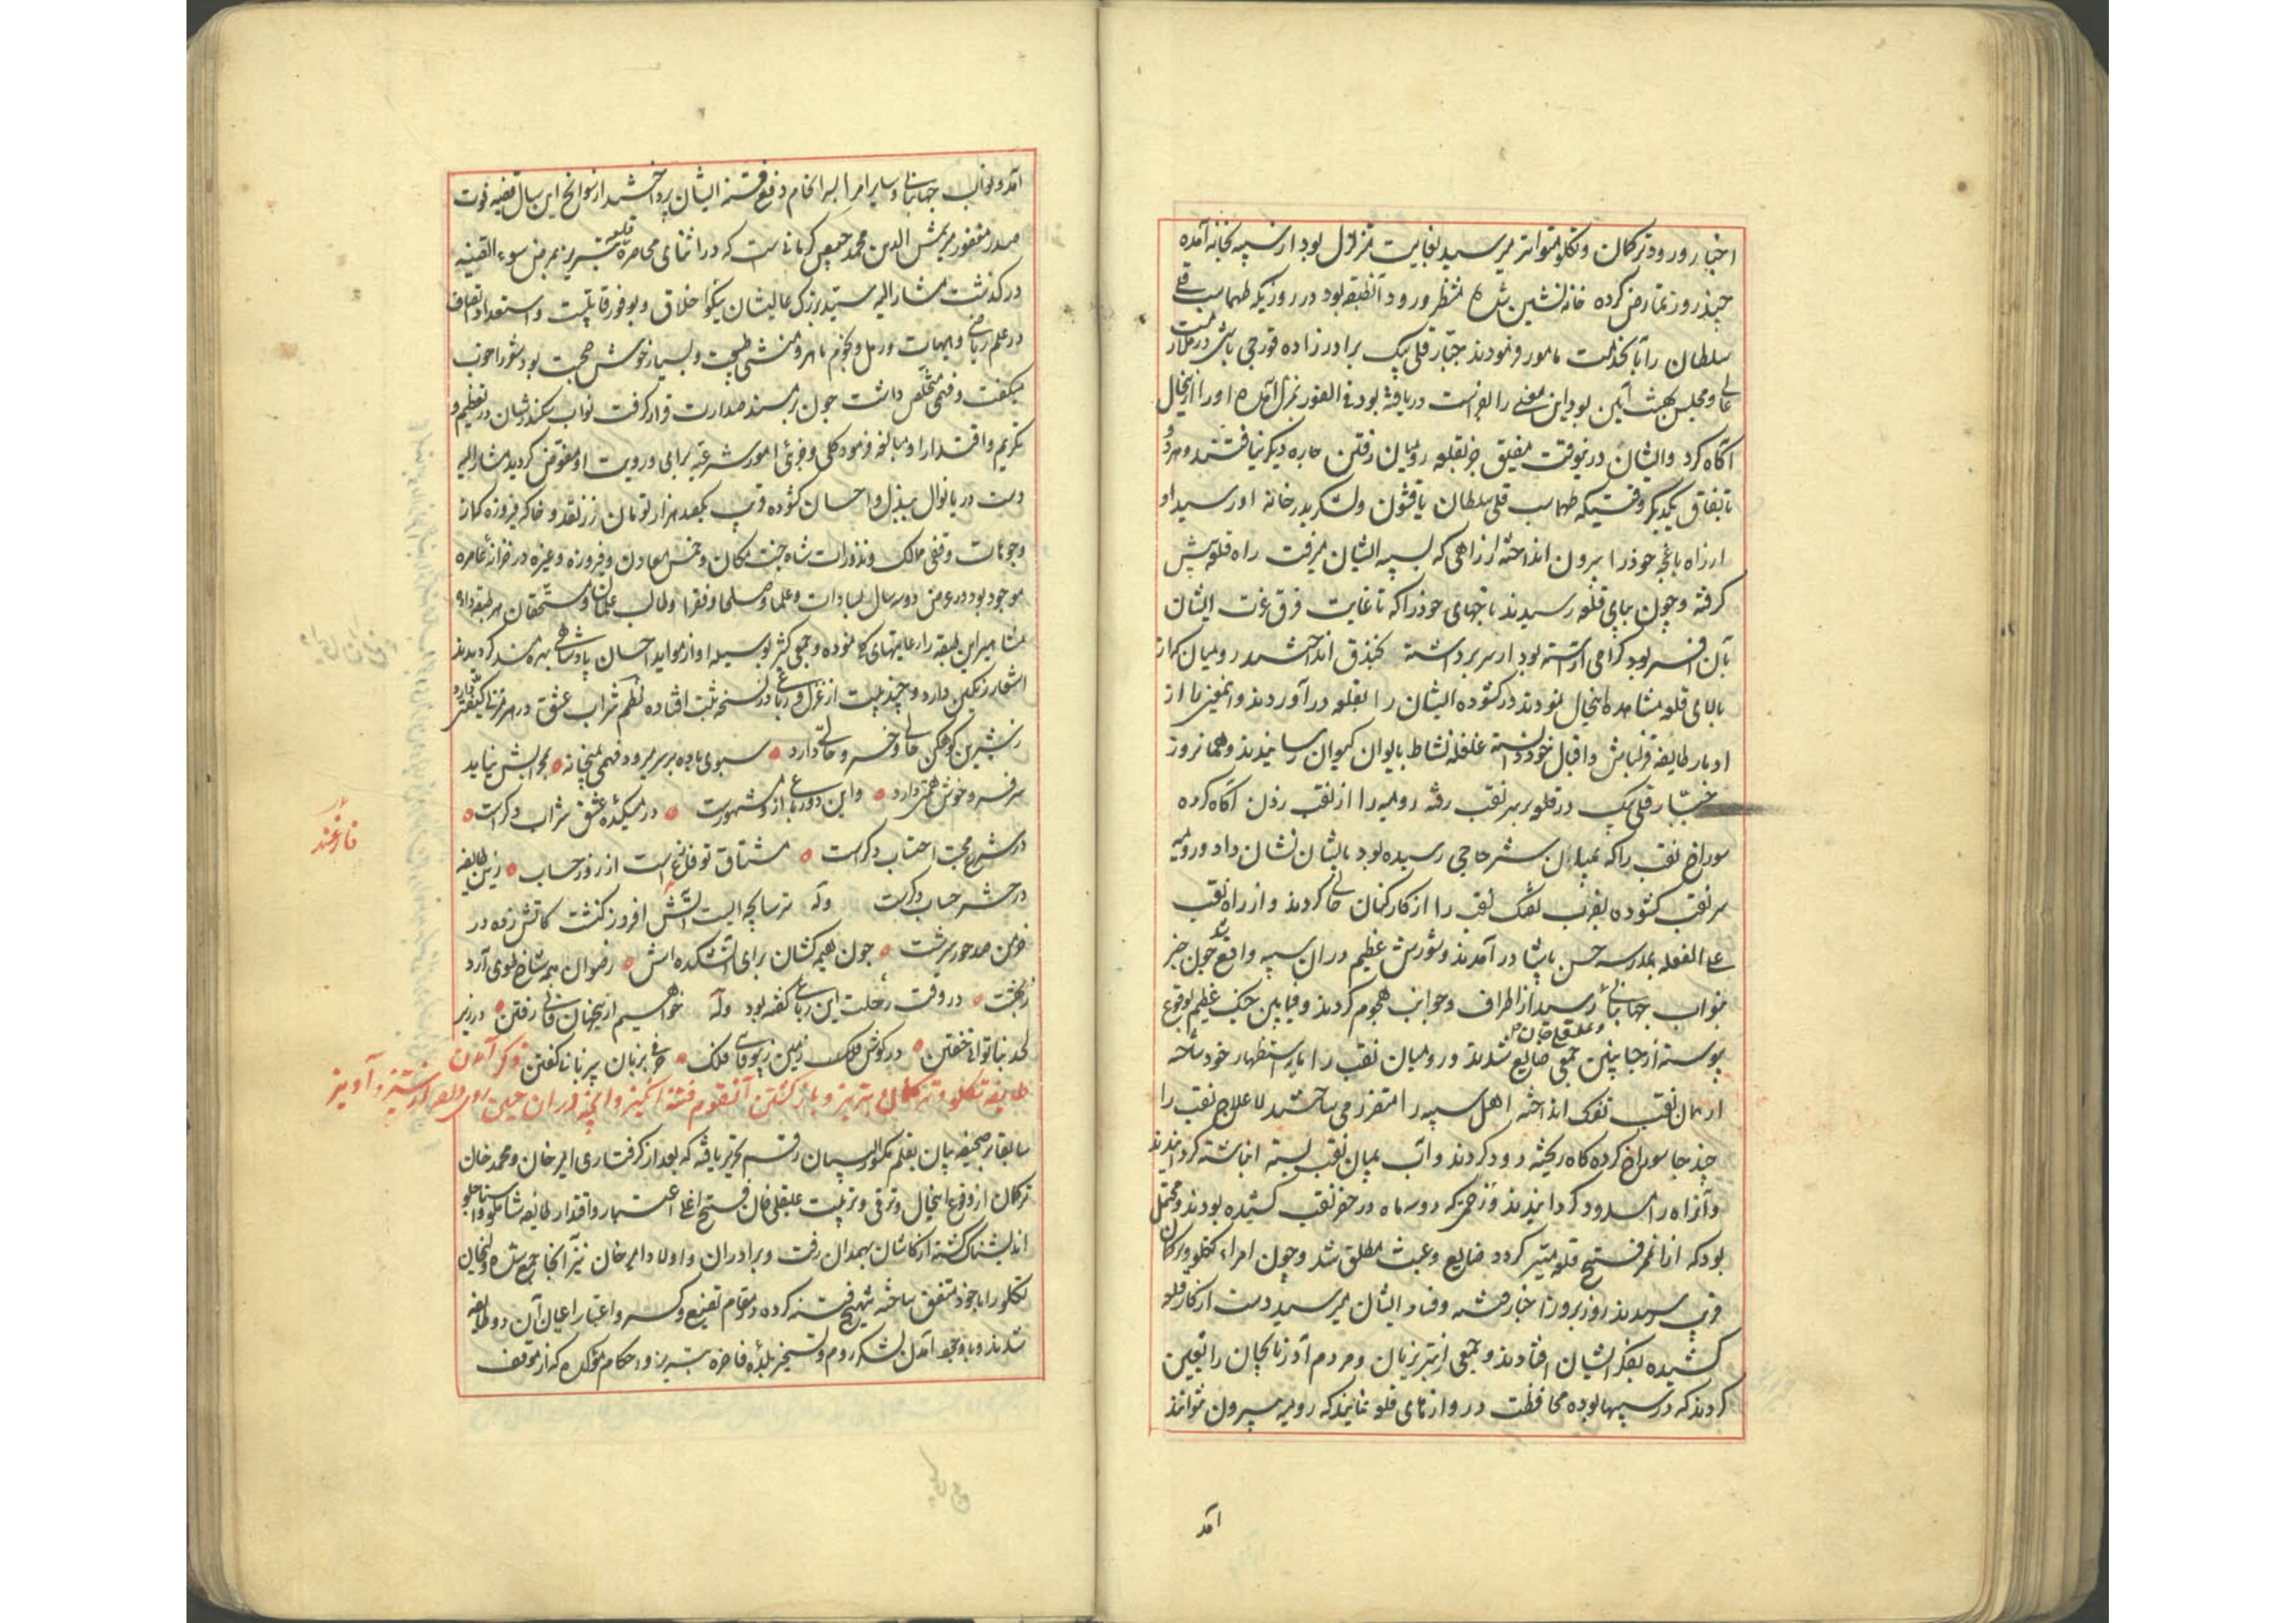 اخبار ورود ترکمان و تکلو متواتر میرسید بغایت متزلزل بود از سیبه بخانه آمده
چند روز تمارض کرده خانه نشین شده منتظر ورود آنطبقه بود در روزیکه طهماسب قلی
سلطان را بآنخدمت مامور فرمودند جبار قلی بیک برادرزاده قورچی باشی در ملازمت
عالی و مجلس بهشت آیین بود این معنی را بفراست دریافته بود فی الفور بمنزل آمده او را ازینحال
آگاه کرد و ایشان در نوقت مضیق جز بقلعه رومیان رفتن چاره دیگر نیافتند و هر دو
باتفاق یکدیگر وقتیکه طهماسب قلی سلطان با قشون و لشکر بدر خانه او رسید او
از راه باغچه خود را بیرون انداخته از راهی که بسیبه ایشان میرفت راه قلعه پیش
گرفته و چون بپای قلعه رسیدند تاجهای خود را که تا غایت فرق عزت ایشان
بآن افسر بود گرامی آراسته بود از سر برداشته بخندق انداختند رومیان که از
بالای قلعه مشاهده اینحال نمودند در گشوده ایشان را بقلعه درآوردند و اینمعنی را از
ادبار طایفه قزلباش و اقبال خود دانسته غلغله نشاط بایوان کیوان رسانیدند و همانروز
جبار قلی بیک در قلعه بر سر نقب رفته رومیه را از نقب زدن آگاه کرده
سوراخ نقب را که بمیان شتر حاجی رسیده بود بایشان نشان داد و رومیه
سر نقب گشوده بضرب تفنگ نقب را از کارکنان خالی کردند و از راه نقب
علی الغفله بمدرسه حسن پاشا درآمدند و شورش عظیم در آن سیبه واقع شد چون خبر
بنواب جهانبانی رسید از اطراف و جوانب هجوم کردند و فیمابین جنگ عظیم بوقوع
و علیقلی خان
پیوسته از جانبین جمعی ضایع شدند و رومیان نقب را باستظهار خود ساخته
از همان نقب تفنگ انداخته اهل سیبه را متفرق می ساختند لاعلاج نقب را
چند جا سوراخ کرده کاه ریخته دود کردند و آب بمیان نقب بسته انباشته گردانیدند
و آن راه را مسدود گردانیدند و زحمتی که دو سه ماه در حفر نقب کشیده بودند و محتمل
بود که از آن ممر فتح قلعه میسر گردد ضایع و عبث مطلق شد و چون امراء تکلو و ترکمان
قریب رسیدند روز بروز اخبار فتنه و فساد ایشان میرسید دست از کار قلعه
کشیده بفکر ایشان افتادند و جمعی از تبریزیان و مردم آذربایجان را تعیین
کردند که در سیبها بوده محافظت دروازهای قلعه نمایند که رومیه بیرون نتوانند
آمد
آمد و نواب جهانبانی و سایر امرا بسرانجام دفع فتنه ایشان پرداختند از سوانح این سال قضیه فوت
صدر مغفور میر شمس الدین محمد خبیصی کرمانیست که در اثنای محاصره قلعه تبریز بمرض سوء القنیه
درگذشت مشارالیه سید بزرگ عالیشان نیکو اخلاق و بوفور قابلیت و استعداد اتصاف
در علم ریاضی و هیات و رمل و نجوم ماهر و منشی طبیعت و بسیار خوش صحبت بود شعر را خوب
میگفت و فهمی تخلص داشت چون بر مسند صدارت قرار گرفت نواب سکندرشان در تعظیم و
تکریم و اقتدار او مبالغه فرمود کلی و جزئی امور شرعیه برای و رویت او مفوض گردید مشارالیه
دست دریا نوال ببذل و احسان گشوده قریب یکصد هزار تومان زر نقد و خاکه فیروزه که از
وجوهات وقفی ممالک و نذورات شاه جنت مکان و خمس معادن و فیروزه و غیره در خزانه عامره
موجود بود در عرض دو سه سال بسادات و علما و صلحا و فقرا و طالب علمان و مستحقان هر طبقه داده
مشاهیر این طبقه را رعایتهای کلی نموده و جمعی کثیر بوسیله او از مواید احسان پادشاهی بهره مند گردیدند
اشعار رنگین دارد و چند بیت از غزل و رباعی در نسخه ثبت افتاده نظم شراب عشق در هر سر
ز شیرین کوهکن حالی و خسرو حالتی دارد ه سبوی باده بر سر میرود فهمی بمیخانه ه بجوابش نیاید
سر فرو خوش همتی دارد ه و این دو رباعی از او مشهورست ه در میکده عشق شراب دگرست ه
در شرع محبت احتساب دگرست ه مشتاق تو فارغست از روز حساب ه زین طایفه
در حشر حساب دگرست وله ترسابچه ایست آتش افروز کنشت کاتش زده در
خرمن صد حور سرشت ه چون هیمه کشان برای آتشکده اش ه رضوان همه شاخ طوبی آرد
ز بهشت ه در وقت رحلت این رباعی گفته بود وله خواهیم ازینجهان فانی رفتن ه در زیر
لحد بناتوانی خفتن ه در گوش ملک زمین فلک ه حرفی بزبان بی زبانی گفتن ذکر آمدن
طایفه تکلو و ترکمان به تبریز و باز گشتن آنقوم فتنه انگیز و آنچه در آن حین روی داد از ستیز و آویز
سابقا بر صحیفه بیان بقلم رقم تحریر یافته که بعد از گرفتاری امیر خان و محمد خان
ترکمان از وقوع اینحال و ترقی و تربیت علیقلی خان فتح اغلی اعتبار و اقتدار طایفه شاملو و استاجلو
اندیشناک گشته از کاشان بهمدان رفت و برادران و اولاد امیر خان نیز آنجا جمع شده ولیخان
تکلو را با خود متفق ساخته تهییج فتنه کرده در مقام تضییع و کسر و اعتبار اعیان آن دو طایفه
شدند و باوجود آمدن لشکر روم و تسخیر بلده فاخره تبریز و احکام موکده که از موقف
فارغند